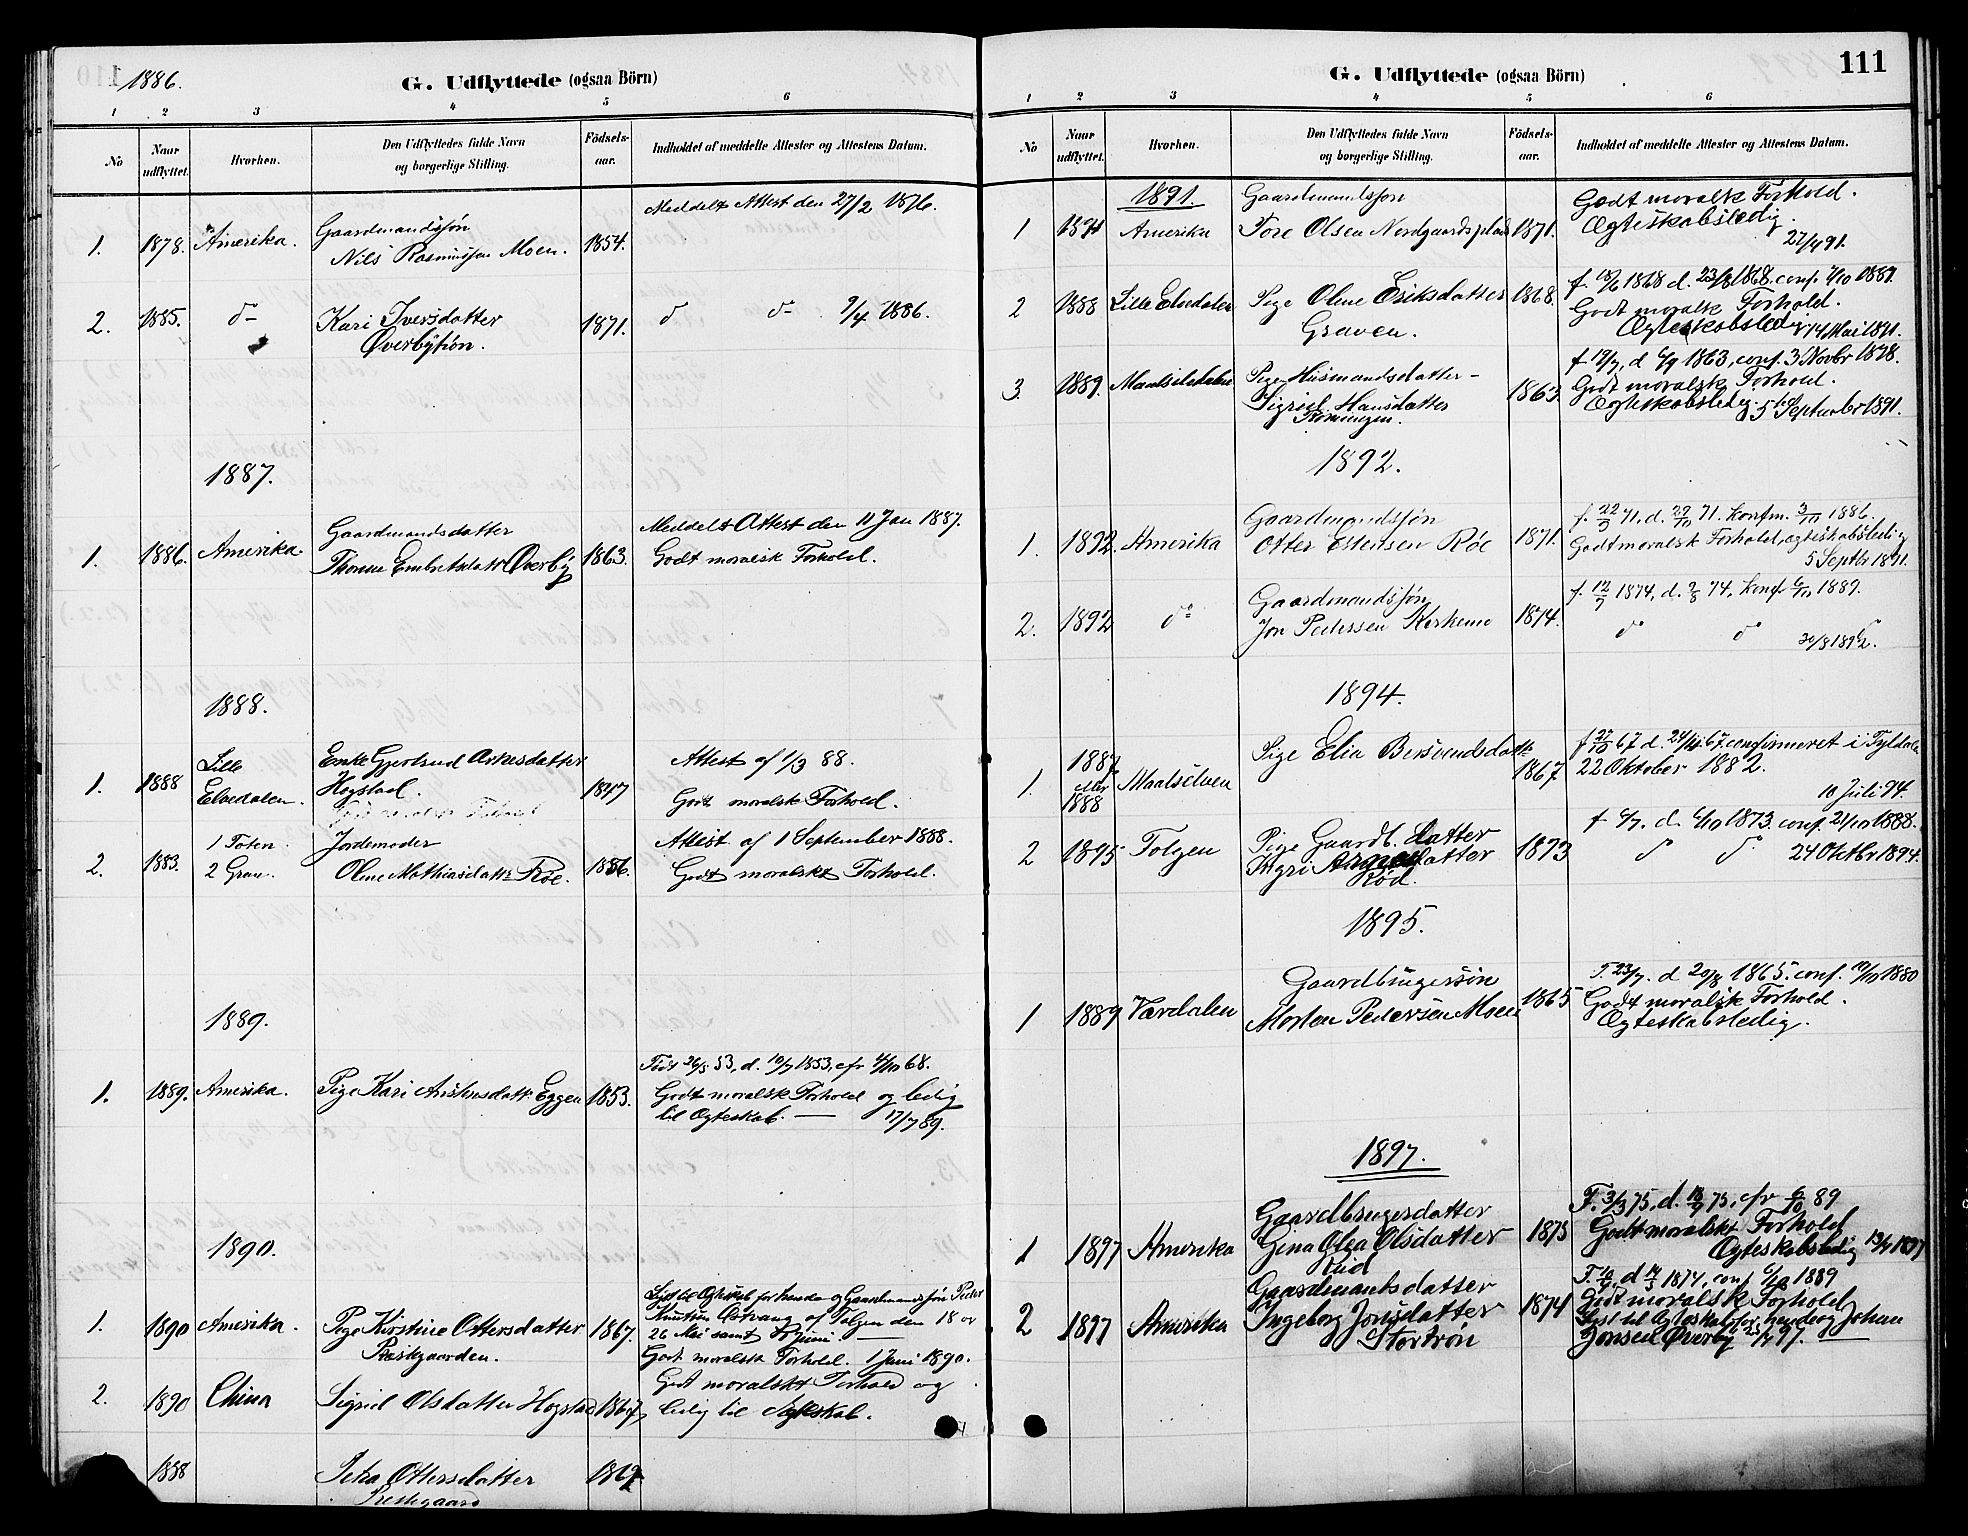 1886.
G. Udflyttede (ogsaa Börn)
1 2 3 4 5 6
No
Naar udflyttet.
Hvorhen.
Den Udflyttedes fulde Navn og borgerlige Stilling.
Födsels-aar.
Indholdet af meddelte Attester og Attestens Datum.
1. 1878. Amerika. Gaardmandssøn 1854. Meddelt Attest den 27/2 1876.
Nils Rasmussen Moen.
2. 1885. do Kari Iversdatter 1871. do do 9/4 1886.
Øverbytrøn.
1887.
1. 1886. Amerika. Gaardmandsdatter 1863. Meddelt Attest den 11 Jan 1887.
Thonne Embretsdatt Øverby Godt moralsk Forhold.
1888.
1. 1888 Lille Elvedalen. Enke Gjertrud Arnesdatter 1847 Attest af 1/3 88.
Hogstad. Godt moralsk Forhold.
2. 1883. 1 Toten. Jordemoder 1856. Attest af 1 September 1888.
2 Gran. Oline Mathiasdatt. Røe. Godt moralskt Forhold.
1889.
1. 1889. Amerika. Pige Kari Austensdatt. Eggen 1853. Født 26/5 53, d. 10/7 1853, cfr 4/10 68.
Godt moralsk Forhold og ledig
til Ægteskab. — 17/7 89.
1890.
1. 1890 Amerika. Pige Kirstine Ottersdatter 1867. Lyst til Ægteskab for hende og Gaardmandssøn Peder
Præstgaarden. Knutsen Østvang af Tolgen den 18 og
26 Mai samt 1 Juni. —
Godt moralsk Forhold. 1 Juni 1890.
2. 1890 China Sigrid Olsdatter Hogstad 1867 Godt moralskt Forhold og
ledig til Ægteskab.
1888 Petra Ottersdatter
Prestegaard
111
G. Udflyttede (ogsaa Börn)
1 2 3 4 5 6
No
Naar udflyttet.
Hvorhen.
Den Udflyttedes fulde Navn og borgerlige Stilling.
Födsels-aar.
Indholdet af meddelte Attester og Attestens Datum.
1891.
1 1891 Amerika Gaardmandsson 1871. Godt moralsk Forhold.
Tore Olsen Nordgaardsplads Ægteskabsledig.
27/4 91.
2 1888 Lille Elvedalen Pige Oline Eriksdatter 1868. f. 18/6 1868 d. 23/8 1868. conf. 7/10 1883.
Graven. Godt moralsk Forhold.
Ægteskabsledig 14 Mai 1891.
3. 1889. Maalselvdalen Pige Husmandsdatter - 1863. f 19/7, d 6/9 1863, conf. 3 Novbr 1878.
Sigrid Hansdatter Godt moralsk Forhold.
Ægteskabsledig. 5 September 1891.
1892.
1. 1892. Amerika Gaardmandssøn 1871. f. 22/9 71, d. 22/10 71. Konfm. 3/10 1886.
Otter Estensen Røe Godt moralsk Forhold, ægteskabsledig
5 Septbr 1891.
2. 1892 do Gaardmandssøn 1874. f. 12/7 1874, d. 9/8 74, Konf 6/10 1889.
Jon Pedersen Kirkemo do do
20/8 1892.
1894.
1. 1887 eller 1888 Maalselven Pige Elia Bersvendsdatt. 1867 f 27/10 67 d. 24/11 67. confirmeret i Tyldalen
22 Oktober 1882.
10 Juli 94.
2 1895 Tolgen Pige Gaardb. datter 1873 f 6/7. d. 6/10 1873. conf. 21/10 1888.
Ingri Arnesdatter do do 24 Oktbr 1894.
Rød.
1895.
1 1889 Værdalen Gaardbrugersøn 1865 F. 23/7. d 20/8 1865. conf. 10/10 1880
Morten Pedersen Moen Godt moralsk Forhold.
Ægteskabsledig.
1897.
1 1897 Amerika Gaardbrugersdatter 1875 F. 3/3 75, d. 18/4 75, cfr 6/10 89
Gina Olea Olsdatter Godt moralskt Forhold
Ægteskabsledig
2 1897 Amerika Gaardmantsdatter 1874 1874, conf 6/10 1889
Ingeborg Jonsdatter Godt moralsk Forhold
Stortrøn Lyst til Ægteskab for hende og Johan
Jonsen Øverby